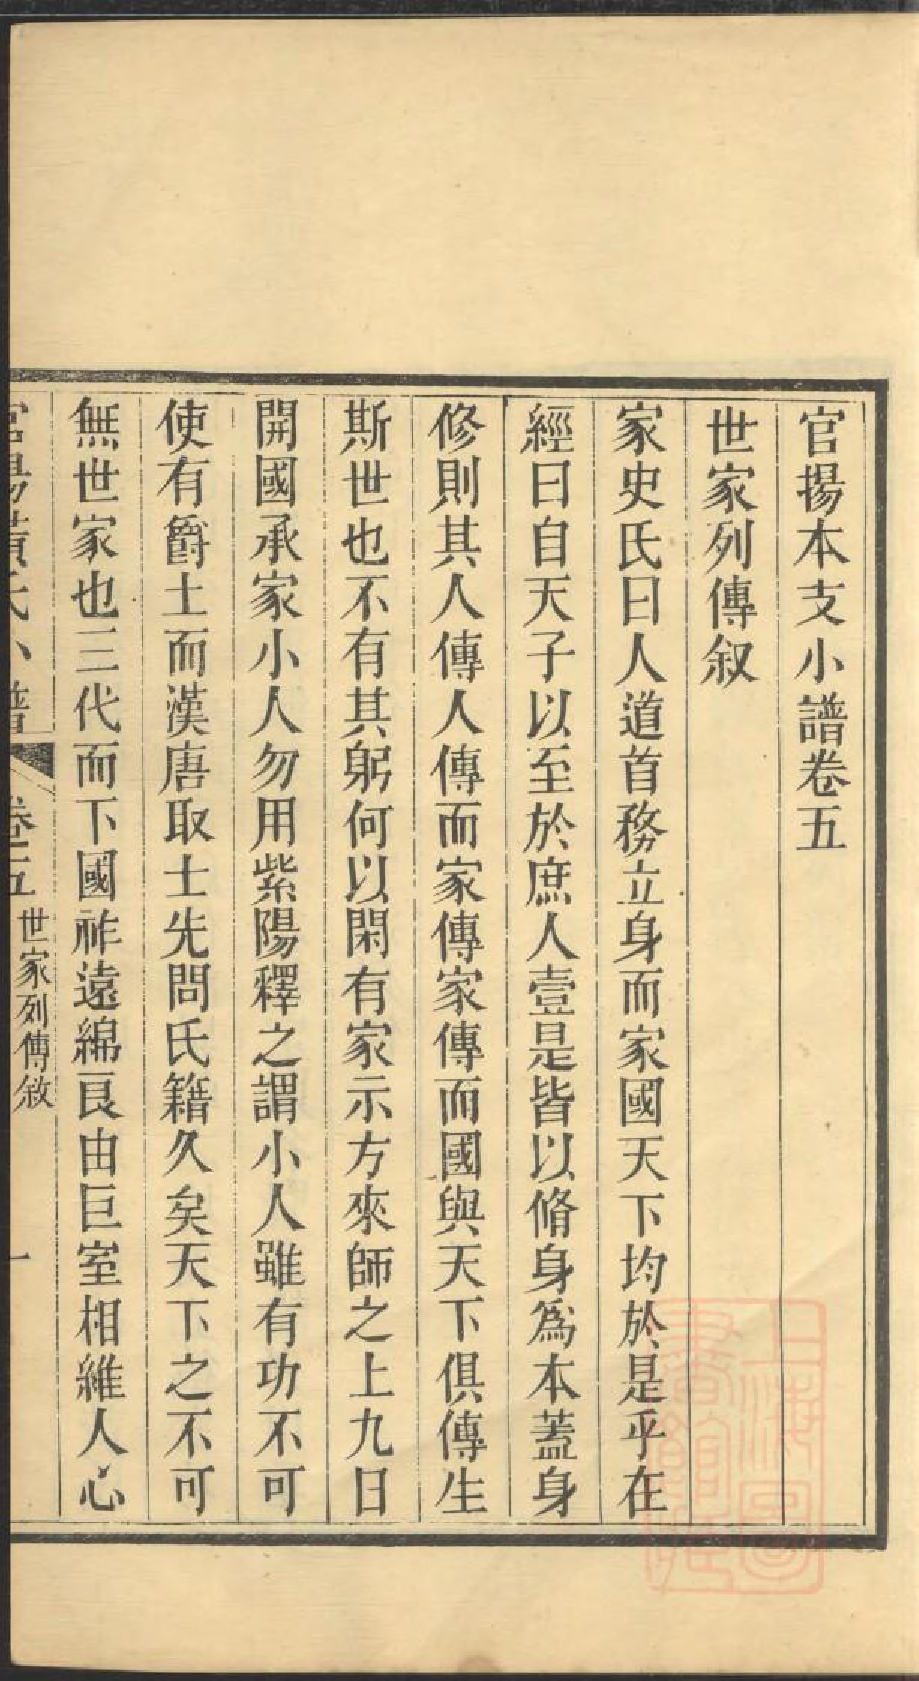 官揚本支小譜卷五
世家列傳叙
家史氏曰人道首務立身而家國天下均於是乎在
經曰自天子以至於庶人壹是皆以脩身爲本蓋身
修則其人傳人傳而家傳家傳而國與天下俱傳生
斯世也不有其躬何以閑有家示方來師之上九曰
開國承家小人勿用紫陽釋之謂小人雖有功不可
使有爵土而漢唐取士先問氏籍久矣天下之不可
無世家也三代而下國祚遠綿良由巨室相維人心
卷五 世家列傳敘 一
上海圖書館藏